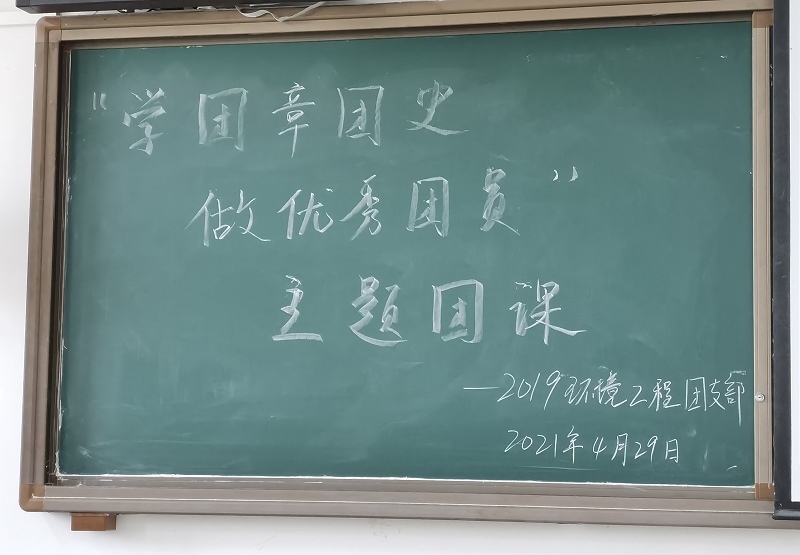 “学团章团史
做优秀团员”
主题团课
—2019环境工程团支部
2021年4月29日